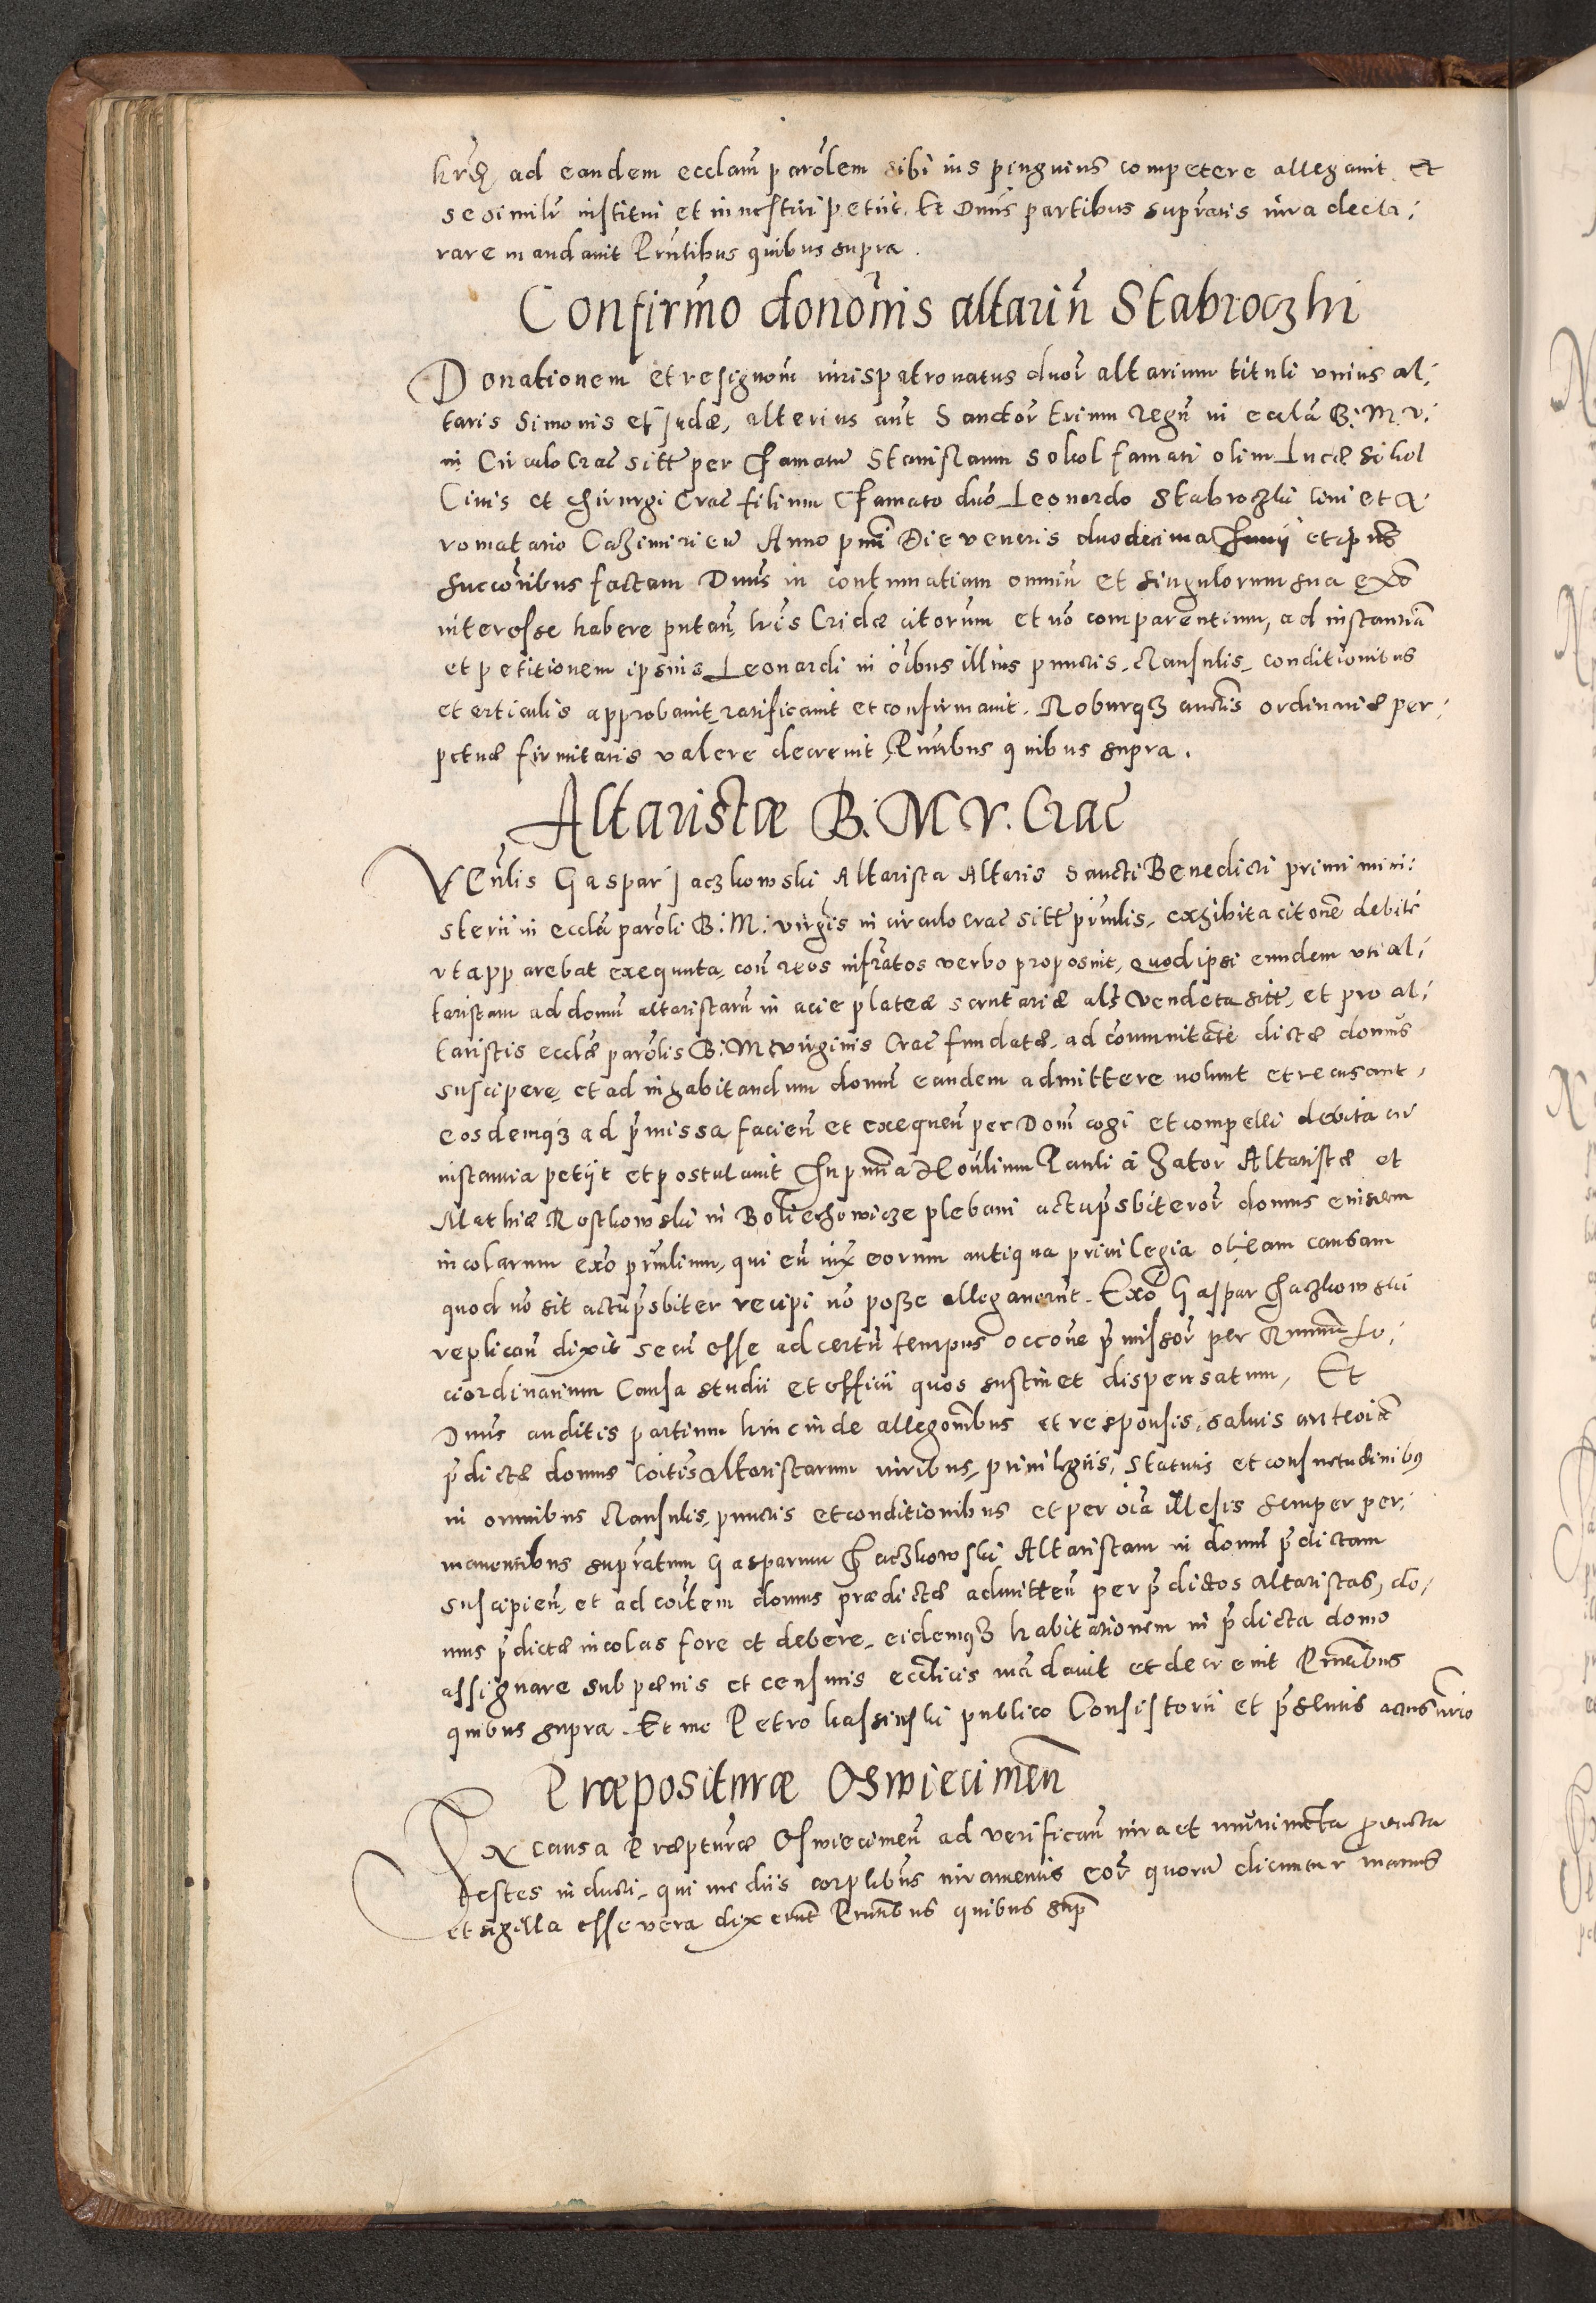 ad eandem eccl̃am parõlem sibi ius pinguius competere allegauit et
se similr̃ institui et inuestiri petiit. Et Dnus partibus supratis iura decla:
rare mandauit Pñtibus quibus supra.
Confirmo donõnis altariũ Stabroczki
Donationem et resignõm iurispatronatus duor altarium tituli vnius al:
taris Simonis et Judæ, alterius aũt Sanctor trium Regũ in eccl̃a B. M. V.
in Circulo Crac̃ sitt̃ per famatũ Stanislaum Sokol famati olim Lucæ Sokol
Ciuis et chirurgi Crac̃ filium famato duõ Leonardo Stabroczki ciui et a:
romatario Cazimirieñ Anno pñti Die veneris duodecima Junij et
succõribus factam Dnus in contumatiam omniũ et singulorum sua exõ
interesse habere putañ, lrĩs Cridæ citorum et nõ comparentium, ad instantiã
et petitionem ipsius Leonardi in oĩbus illius punctis, clausulis, conditionibus
et articulis approbauit, ratificauit et confirmauit. Roburqʒ auctis ordinariæ per:
petuæ firmitatis valere decreuit, Pñtibus quibus supra.
Altaristæ B. M. V. Crac̃
VEñlis Gaspar Jaczkowski Altarista Altaris Sancti Benedicti primi mini:
sterii in eccl̃a parõli B. M. virgĩs in circulo Crac̃ sitt̃ prĩnlis, exhibita citõne debite
vt apparebat exequuta, coñ reos infratos verbo proposuit, quod ipsi eundem vti al:
taristam ad domũ altaristarũ in acie plateæ scutariæ als Vendeta sitt̃, et pro al:
taristis eccl̃æ parõlis B. M. virginis Crac̃ fundatæ, ad cõmunitatẽ dictæ domus
suscipere, et ad inhabitandum domũ eandem admittere nolunt et recusant,
eosdemqʒ ad p̃missa facieñ et exequeñ per Dom̃ cogi et compelli debita cũ
instantia petijt et postulauit In pñtia Hoñlium Pauli à Zator Altaristæ et
Mathiæ Rostkowski in plebani actu p̃sbiteror domus eiusdem
incolarum exõ prĩnlium, qui eũ iux̃ eorum antiqua priuilegia ob eam causam
quod nõ sit actu p̃sbiter recipi nõ posse allegauerũt. Exõ Gaspar Jaczkowski
replicañ dixit secũ esse ad certũ tempus occõne p̃missor per Rñdum Lo:
ci ordinarium Causa studii et officii quos sustinet dispensatum, Et
Dnus auditis partium hinc inde allegõnibus et responsis, saluis
p̃dictæ domus coĩtis Altaristarum iuribus, priuilegiis, statutis et consuetudinibus
in omnibus clausulis, punctis et conditionibus et per oĩa illesis semper per:
manentibus supratum Gasparum Jaczkowski Altaristam in domũ p̃dictam
suscipieñ, et ad coĩtem domus prædictæ admitteñ per p̃dictos Altaristas, do:
mus p̃dictæ incolas fore et debere, eidemqʒ habitationem in p̃dicta domo
assignare sub pœnis et censuris eccl̃icis mãdauit et decreuit Pñtibus
quibus supra. Et me Petro Kassinski publico Consistorii et p̃sentis actus nrio
Præpositturæ Oswiecimeñ
In causa Præpturæ Oswiecimeñ ad verificañ iura et munimẽta producta
testes inducti, qui mediis corplibus iuramentis eor quorũ dicuntur manus
et sigilla esse vera dixerũt Pñtibus quibus sup̃